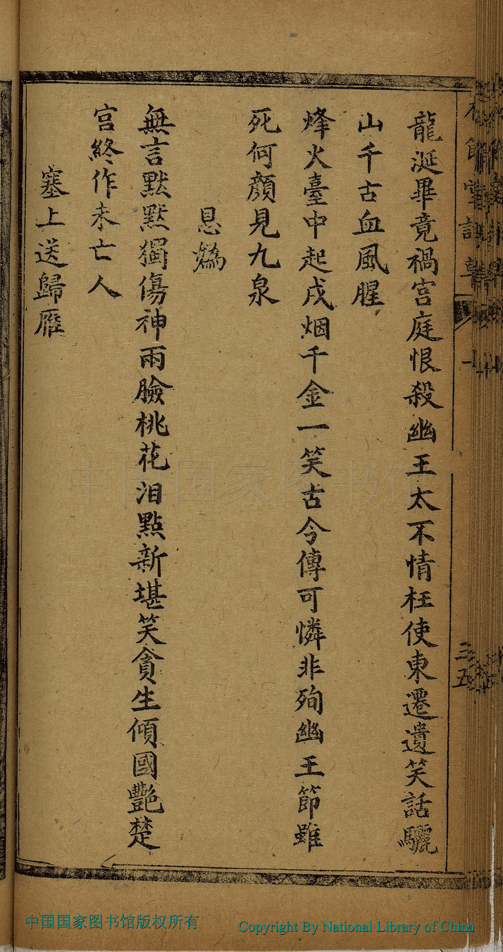 龍涎畢竟禍宮庭恨殺幽王太不情枉使東遷遺笑話驪
山千古血風腥
烽火臺中起戍烟千金一笑古今傳可憐非殉幽王節雖
死何顏見九泉
息媯
無言默默獨傷神兩臉桃花泪點新堪笑貪生傾國艷楚
宮終作未亡人
塞上送歸雁
三五
中国国家图书馆版权所有
Copyright By National Library of China